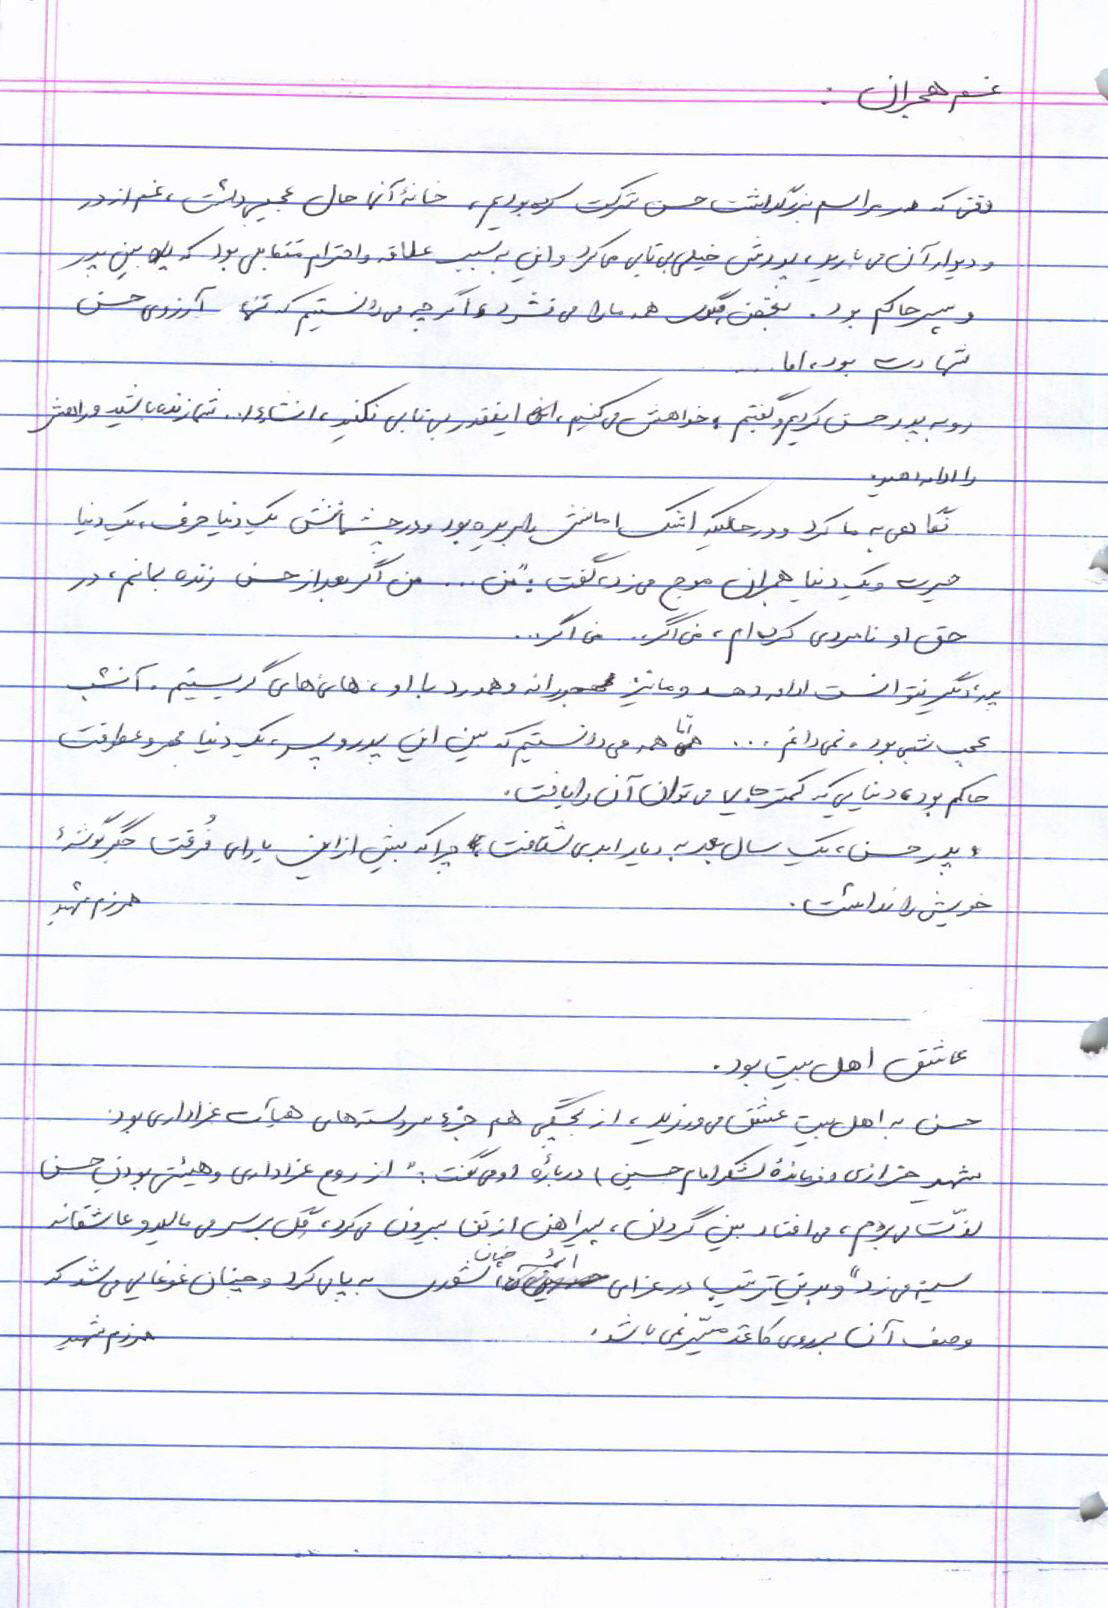 غم هجران :
وقتی که در مراسم بزرگداشت حسن شرکت کرده بودیم، خانهٔ آنها حال عجیبی داشت، غم از در
و دیوار آن می بارید، پدرش خیلی بی تابی می کرد و این به سبب علاقه و احترام متقابلی بود که بین پدر
و پسر حاکم بود. بغض گلوی همه ما را می فشرد، اگر چه می دانستیم که تنها آرزوی حسن
شهادت بود، اما....
رو به پدر حسن کردیم و گفتیم، خواهش می کنیم، اینقدر بی تابی نکنید، انشاءا.. شما زنده باشید و راهش
را ادامه دهید.
نگاهی به ما کرد و در حالیکه اشک امانش را بریده بود و در چشمانش یک دنیا حرف، یک دنیا
حیرت و یک دنیا هجران موج می زد، گفت: "من ... من اگر بعد از حسن زنده بمانم، در
حق او نامردی کرده ام، من اگر... من اگر...
پدر، دیگر نتوانست ادامه دهد و ما نیز و همدرد با او، های های گریستیم. آنشب
عجب شبی بود. نمی دانم، ... امّا همه می دانستیم که بین این پدر و پسر، یک دنیا مهر و عطوفت
حاکم بود، دنیایی که کمتر جایی می توان آن را یافت.
و پدر حسن، یک سال بعد به دیار ابدی شتافت، چرا که بیش از این یارای فُرقت جگرگوشهٔ
خویش را نداشت. همرزم شهید
عاشق اهل بیت بود.
حسن به اهل بیت عشق می ورزید، از بچگی هم جزء سردسته های هیأت عزاداری بود.
شهید خرازی (فرماندهٔ لشکر امام حسین) دربارهٔ او می گفت: "از روح عزاداری و هیئتی بودنِ حسن
لذّت می بردم، می افتاد بین گردان، پیراهن از تن بیرون می کرد، گل بر سر می مالید و عاشقانه
سینه می زد" و بدین ترتیب در عزای ائمهٔ چنان شوری به پا می کرد و چنان غوغایی می شد که
وصف آن بر روی کاغذ میّسر نمی باشد. همرزم شهید